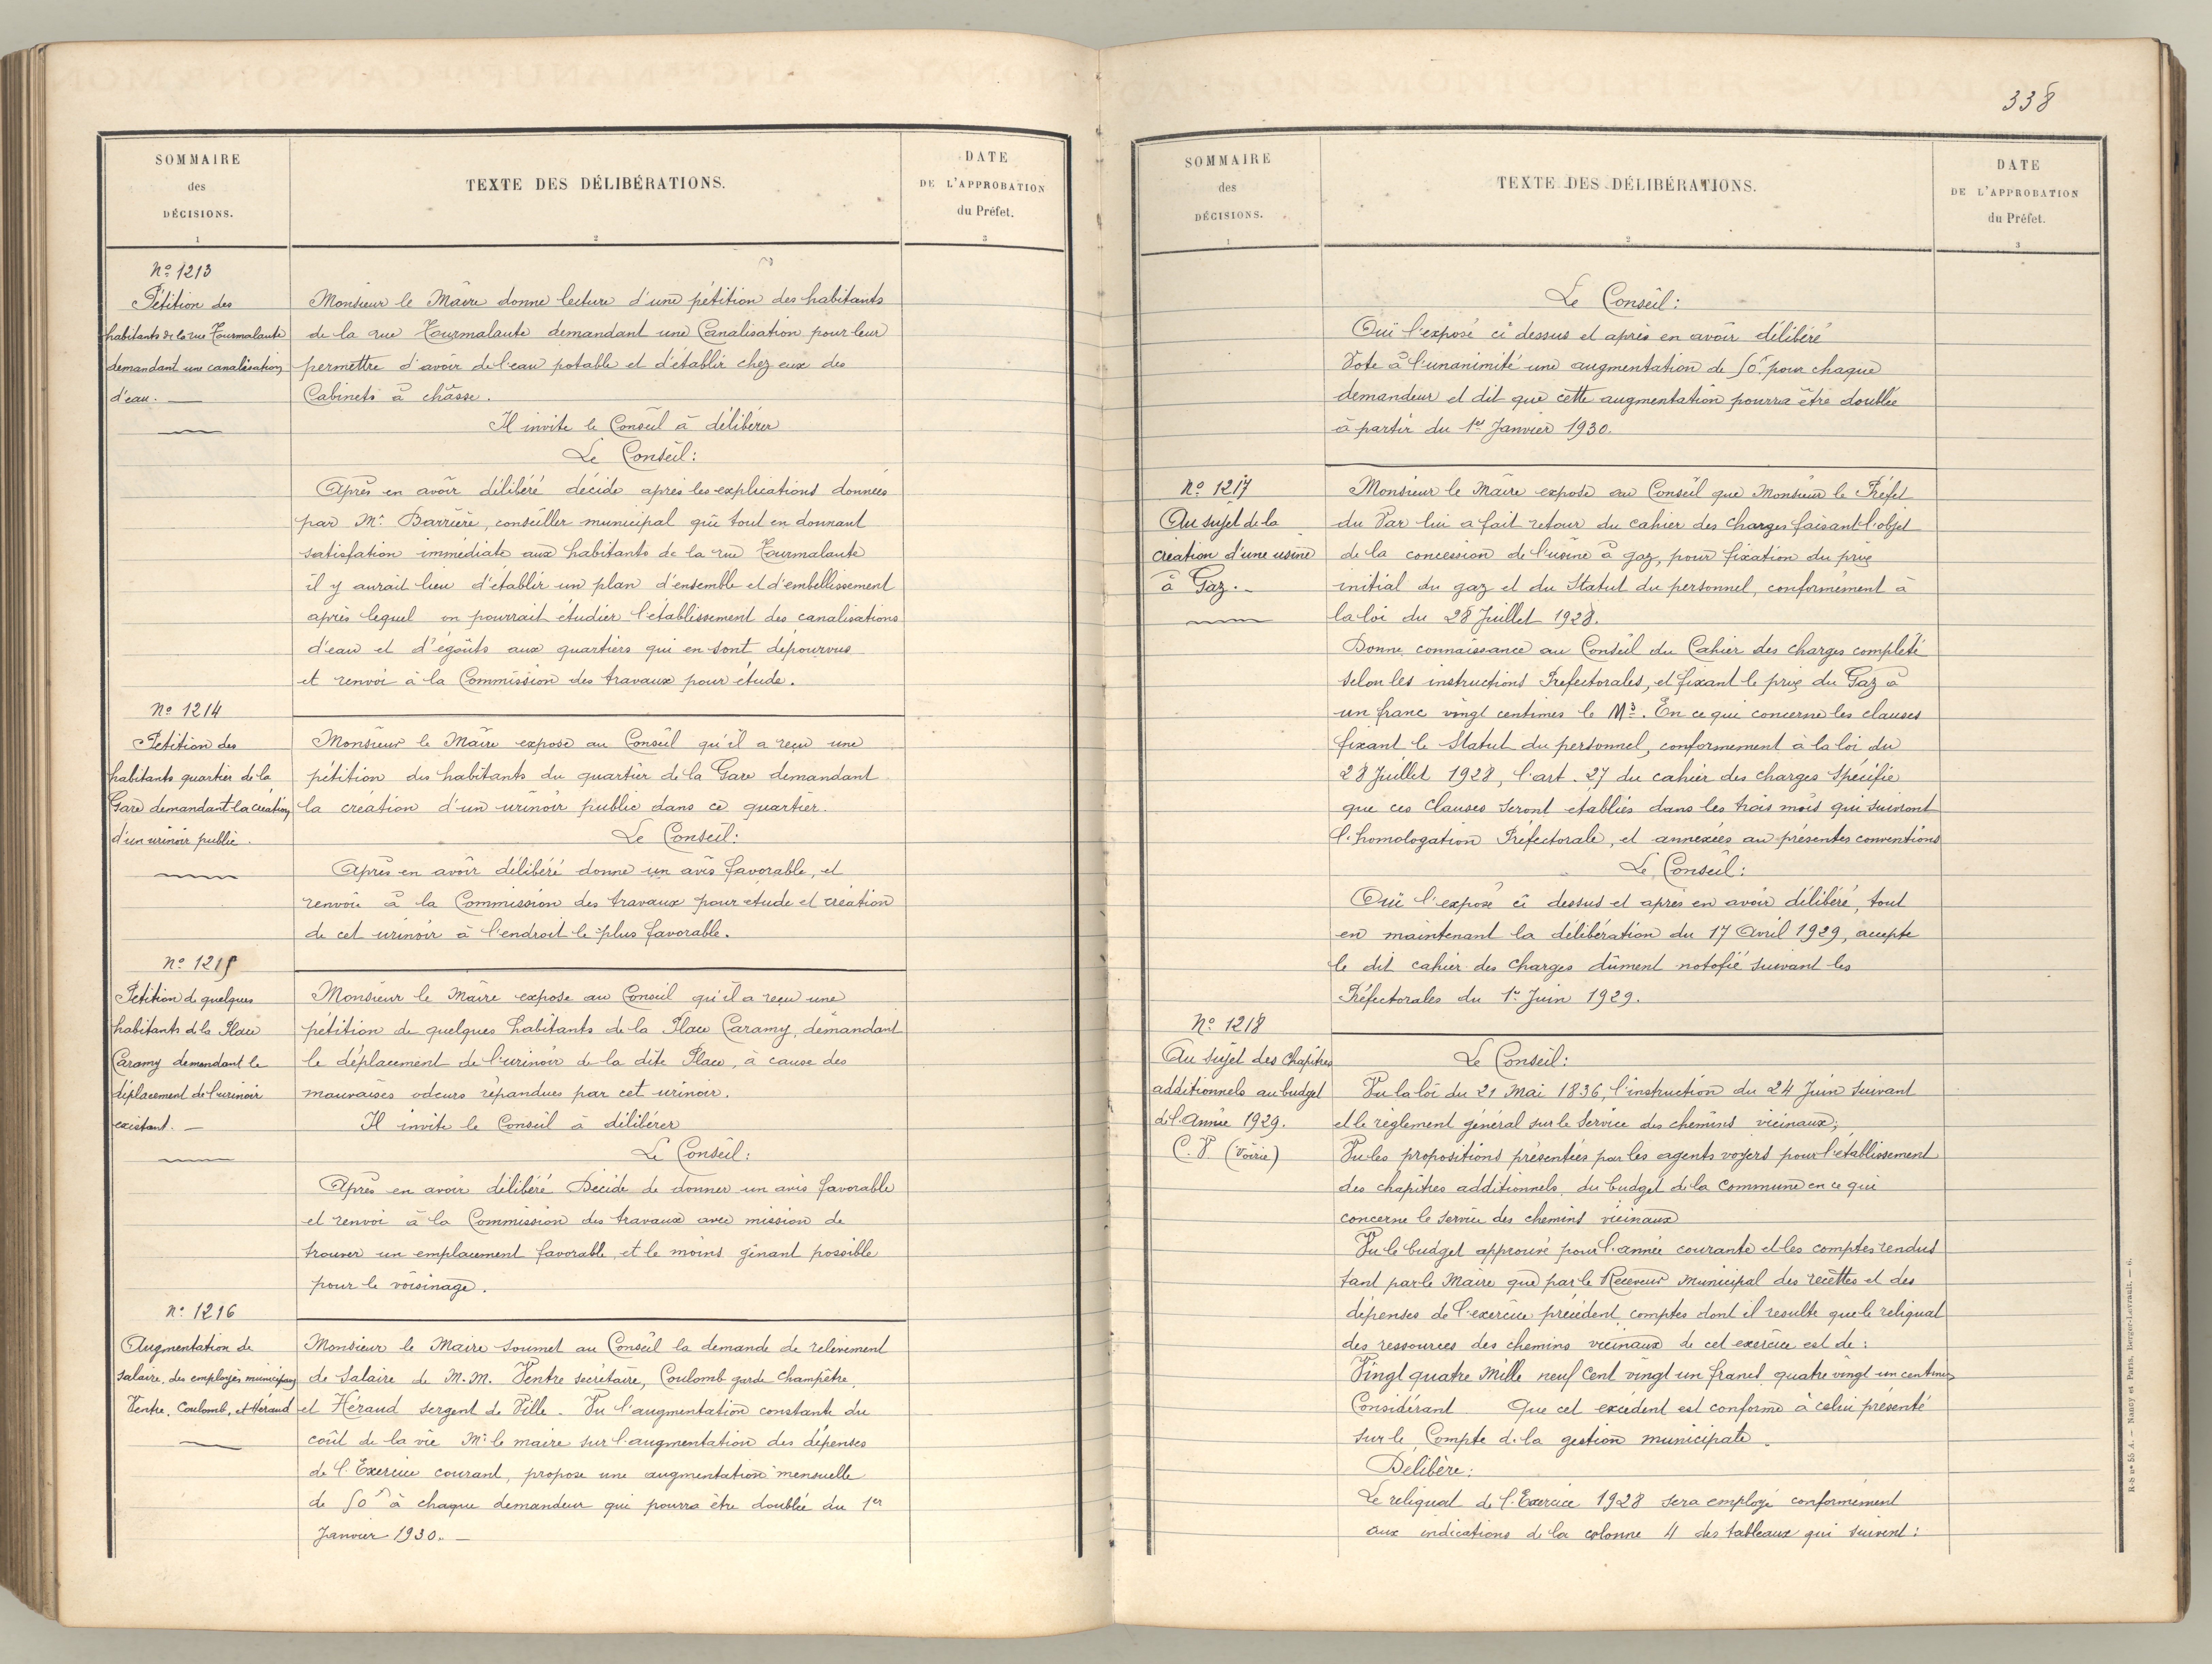 338
SOMMAIRE
des
DÉCISIONS.
1
TEXTE DES DÉLIBÉRATIONS.
2
DATE
DE L'APPROBATION
du Préfet.
3
Nº 1213
Pétition des
habitants de la rue Tourmalante
demandant une canalisation
d'eau. —
Monsieur le Maire donne lecture d'une pétition des habitants
de la rue Tourmalante demandant une Canalisation pour leur
permettre d'avoir de l'eau potable et d'établir chez eux des
Cabinets à châsse.
Il invite le Conseil à délibérer
Le Conseil:
Après en avoir délibéré décide après les explications données
par Mr. Barrière, conseiller municipal que tout en donnant
satisfation immédiate aux habitants de la rue Tourmalante
il y aurait lieu d'établir un plan d'ensemble et d'embellissement
après lequel on pourrait étudier l'établissement des canalisations
d'eau et d'égoûts aux quartiers qui en sont dépourvus
et renvoi à la Commission des travaux pour étude.
Nº 1214
Pétition des
habitants quartier de la
Gare demandant la création
d'un urinoir public.
Monsieur le Maire expose au Conseil qu'il a reçu une
pétition des habitants du quartier de la Gare demandant
la création d'un urinoir public dans ce quartier.
Le Conseil:
Après en avoir délibéré donne un avis favorable, et
renvoie à la Commission des travaux pour étude et création
de cet urinoir à l'endroit le plus favorable.
Nº 1215
Pétition de quelques
habitants de la Place
Caramy demandant le
déplacement de l'urinoir
existant. —
Monsieur le Maire expose au Conseil qu'il a reçu une
pétition de quelques habitants de la Place Caramy, demandant
le déplacement de l'urinoir de la dite Place, à cause des
mauvaises odeurs répandues par cet urinoir.
Il invite le Conseil à délibérer
Le Conseil:
Après en avoir délibéré Décide de donner un avis favorable
et renvoi à la Commission des travaux avec mission de
trouver un emplacement favorable et le moins gênant possible
pour le voisinage.
Nº 1216
Augmentation de
salaire des employés municipaux
Ventre, Coulomb, et Héraud
Monsieur le Maire soumet au Conseil la demande de relèvement
de Salaire de M.M. Ventre secrétaire, Coulomb garde Champêtre,
et Héraud sergent de Ville. Vu l'augmentation constante du
coût de la vie Mr. le maire sur l'augmentation des dépenses
de l'Exercice courant, propose une augmentation mensuelle
de 50f à chaque demandeur qui pourra être doublée du 1er
Janvier 1930. —
SOMMAIRE
des
DÉCISIONS.
1
TEXTE DES DÉLIBÉRATIONS.
2
DATE
DE L'APPROBATION
du Préfet.
3
Le Conseil:
Oui l'exposé ci dessus et après en avoir délibéré
Vote à l'unanimité une augmentation de 50f pour chaque
demandeur et dit que cette augmentation pourra être doublée
à partir du 1er Janvier 1930.
Nº 1217
Au sujet de la
création d'une usine
à Gaz. —
Monsieur le Maire expose au Conseil que Monsieur le Préfet
du Var lui a fait retour du cahier des charges faisant l'objet
de la concession de l'usine à gaz, pour fixation du prix
initial du gaz et du Statut du personnel, conformément à
la loi du 28 Juillet 1928.
Donne connaissance au Conseil du Cahier des charges complété
selon les instructions Préfectorales, et fixant le prix du Gaz à
un franc vingt centimes le M3. En ce qui concerne les clauses
fixant le Statut du personnel, conformement à la loi du
28 Juillet 1928, l'art. 27 du cahier des charges spécifie
que ces Clauses seront établies dans les trois mois qui suivront
l'homologation Préfectorale, et annexées au présentes conventions
Le Conseil:
Oui l'exposé ci dessus et après en avoir délibéré, tout
en maintenant la délibération du 17 Avril 1929, accepte
le dit cahier des charges dûment notofié suivant les
Préfectorales du 1er Juin 1929.
Nº 1218
Au sujet des Chapitres
additionnels au budget
de l'Année 1929.
C. V. (Voirie)
Le Conseil:
Vu la loi du 21 Mai 1836, l'instruction du 24 Juin suivant
et le règlement général sur le Service des chemins vicinaux;
Vu les propositions présentées par les agents voyers pour l'établissement
des chapitres additionnels du budget de la Commune en ce qui
concerne le service des chemins vicinaux
Vu le budget approuvé pour l'année courante et les comptes rendus
tant par le Maire que par le Receveur municipal des recettes et des
dépenses de l'exercice précédent comptes dont il resulte que le reliquat
des ressources des chemins vicinaux de cet exercice est de:
Vingt quatre Mille neuf Cent vingt un francs quatre vingt un centimes
Considérant Que cet excédent est conforme à celui présenté
sur le Compte de la gestion municipale.
Delibère:
Le reliquat de l'Exercice 1928 sera employé conformément
aux indications de la colonne 4 des tableaux qui suivent:
R-S nº 55 A. — Nancy et Paris, Berger-Levrault. — 6.